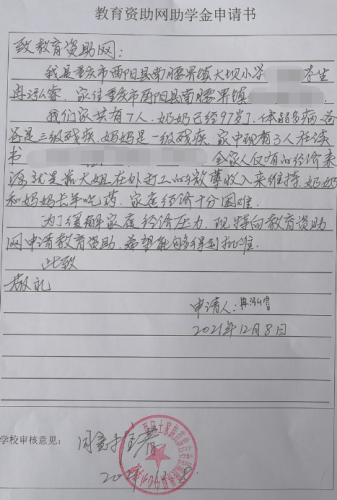 教育资助网助学金申请书
致教育资助网：
我是重庆市酉阳县南腰界镇大坝小学 学生
冉泓睿，家住重庆市酉阳县南腰界镇
我们家共有7人，奶奶已经97岁了，体弱多病，爸
爸是三级残疾，妈妈是一级残疾，家中现有3人在读
书 全家人仅有的经济来
源就是靠大姐在外打工的微薄收入来维持，奶奶
和妈妈长年吃药，家庭经济十分困难。
为了缓解家庭经济压力，现特向教育资助
网申请教育资助，希望能够得到批准。
此致
敬礼
申请人：冉泓睿
2021年12月8日
学校审核意见：同意